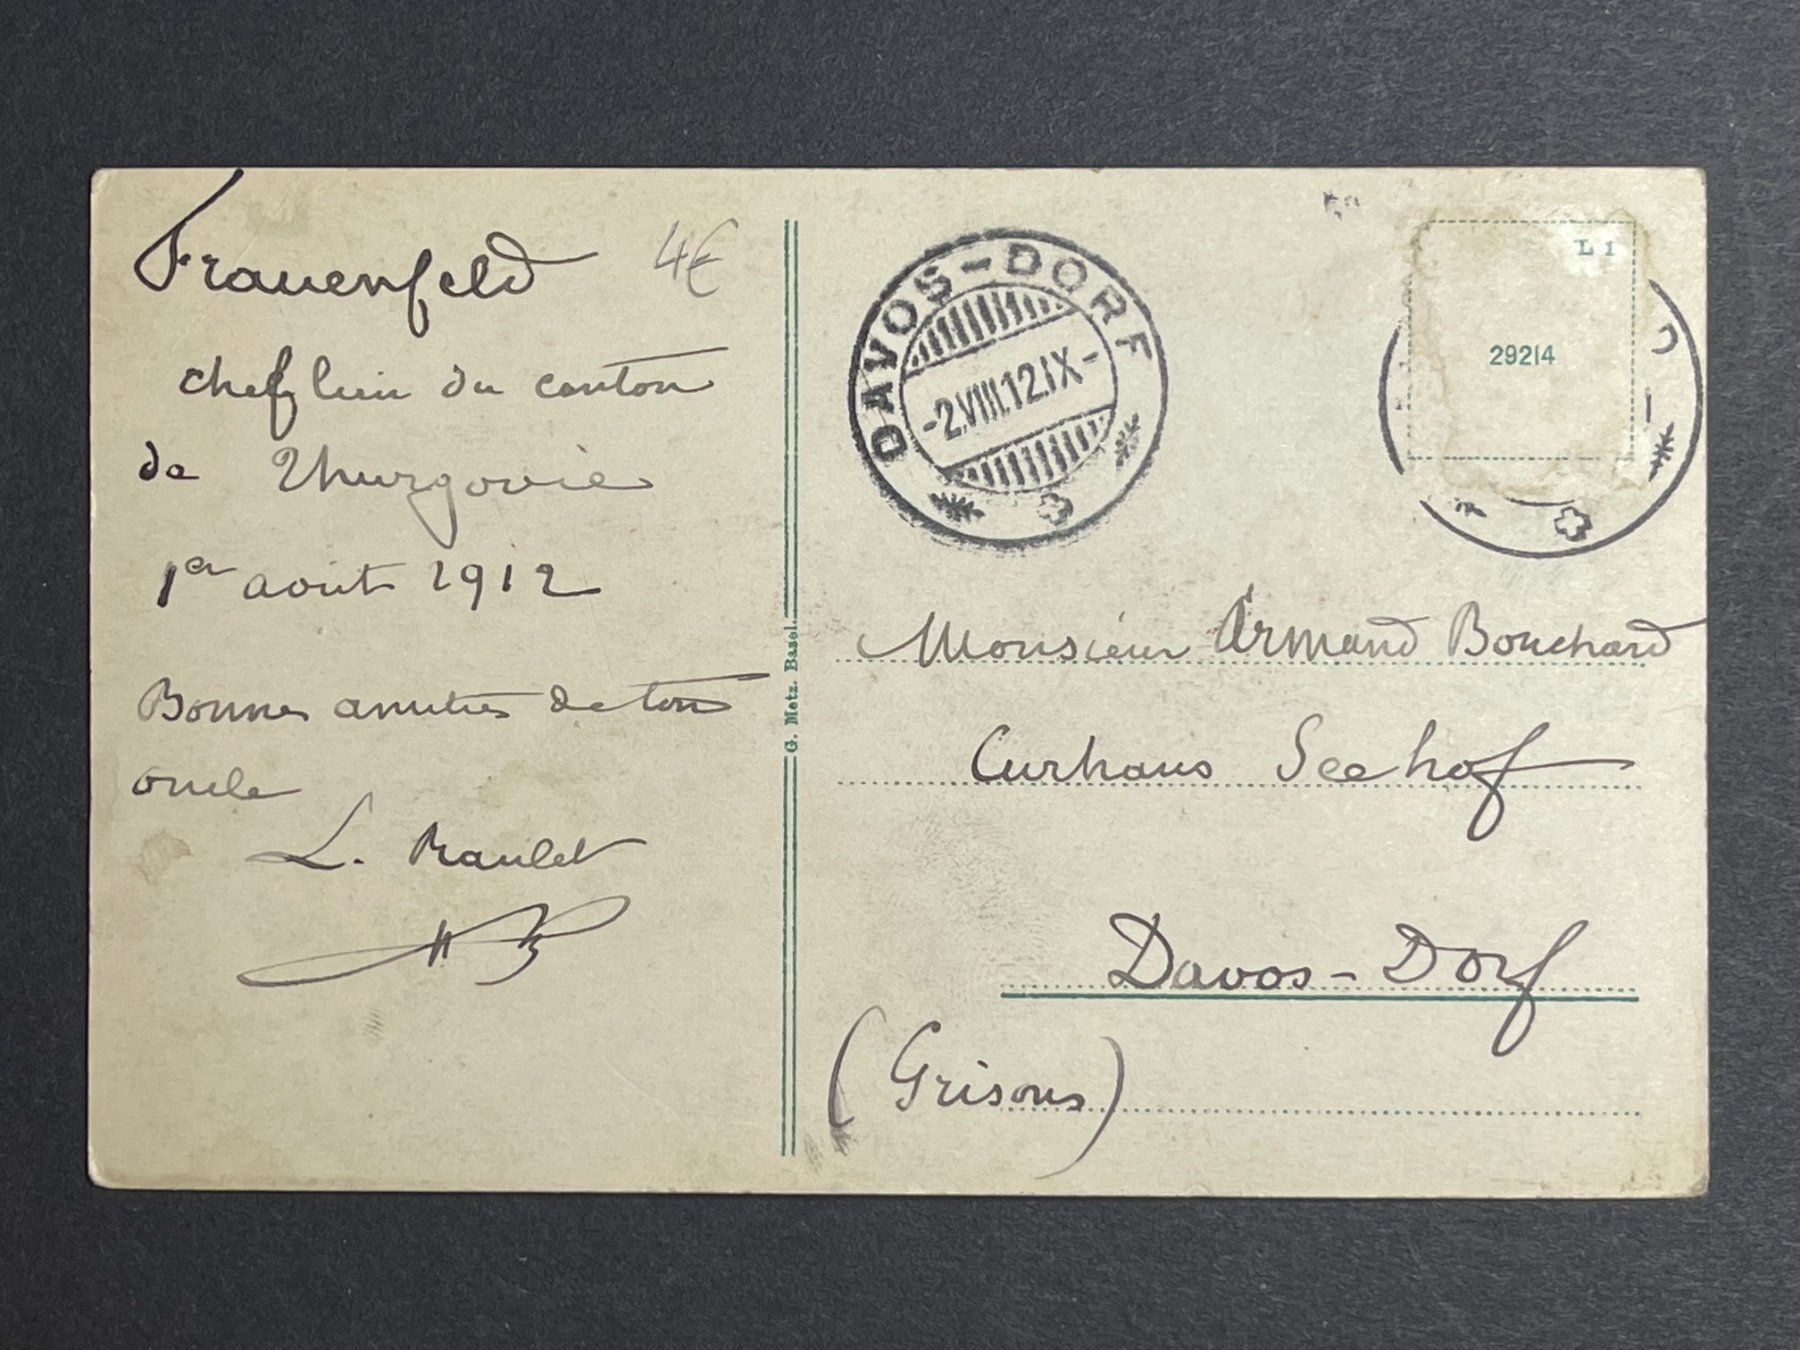 Frauenfeld
4€
chef lieu du canton
de Thurgovie
1er août 1912
Bonnes amitiés de ton
oncle
L. Raulet
G. Metz. Basel.
DAVOS-DORF
-2.VIII.12.IX-
L 1
29214
Monsieur Armand Bouchard
Curhaus Seehof
Davos-Dorf
(Grisons)